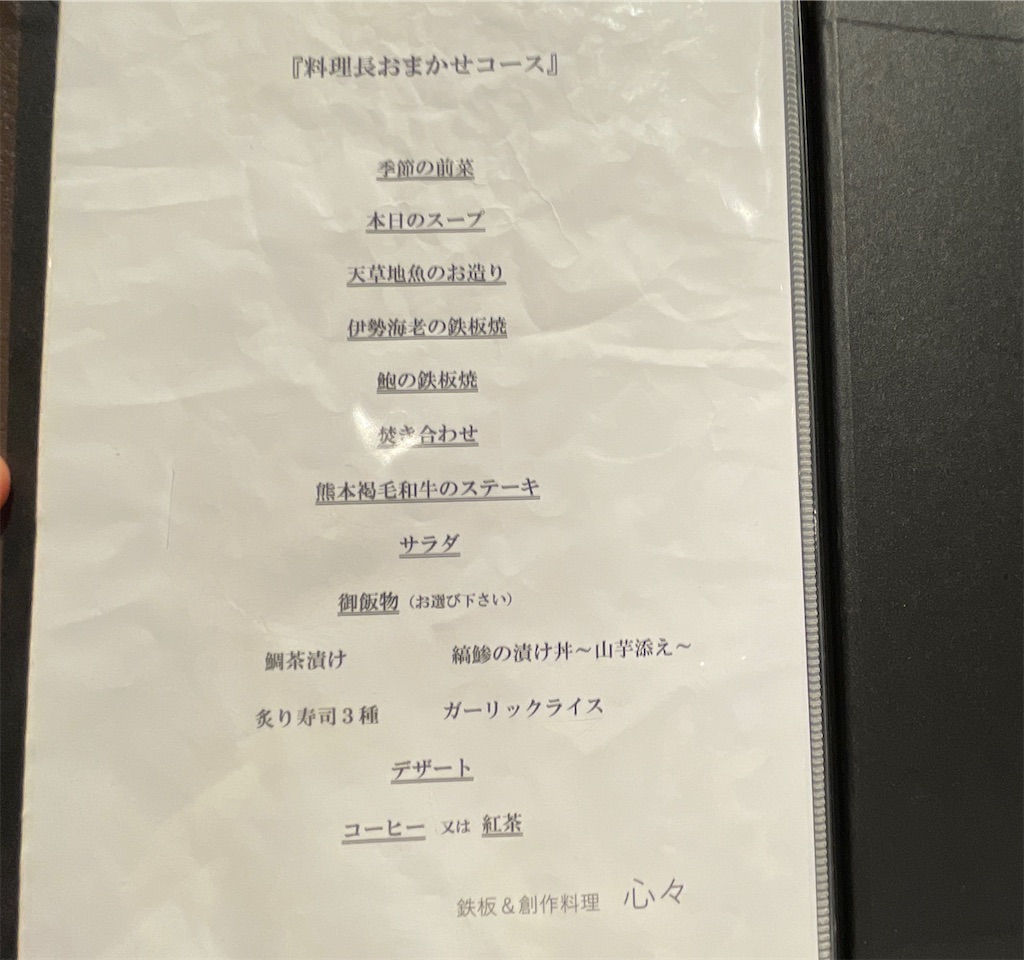 『料理長おまかせコース』
季節の前菜
本日のスープ
天草地魚のお造り
伊勢海老の鉄板焼
鮑の鉄板焼
焚き合わせ
熊本褐毛和牛のステーキ
サラダ
御飯物（お選び下さい）
鯛茶漬け 縞鯵の漬け丼～山芋添え～
炙り寿司３種 ガーリックライス
デザート
コーヒー 又は 紅茶
鉄板＆創作料理 心々